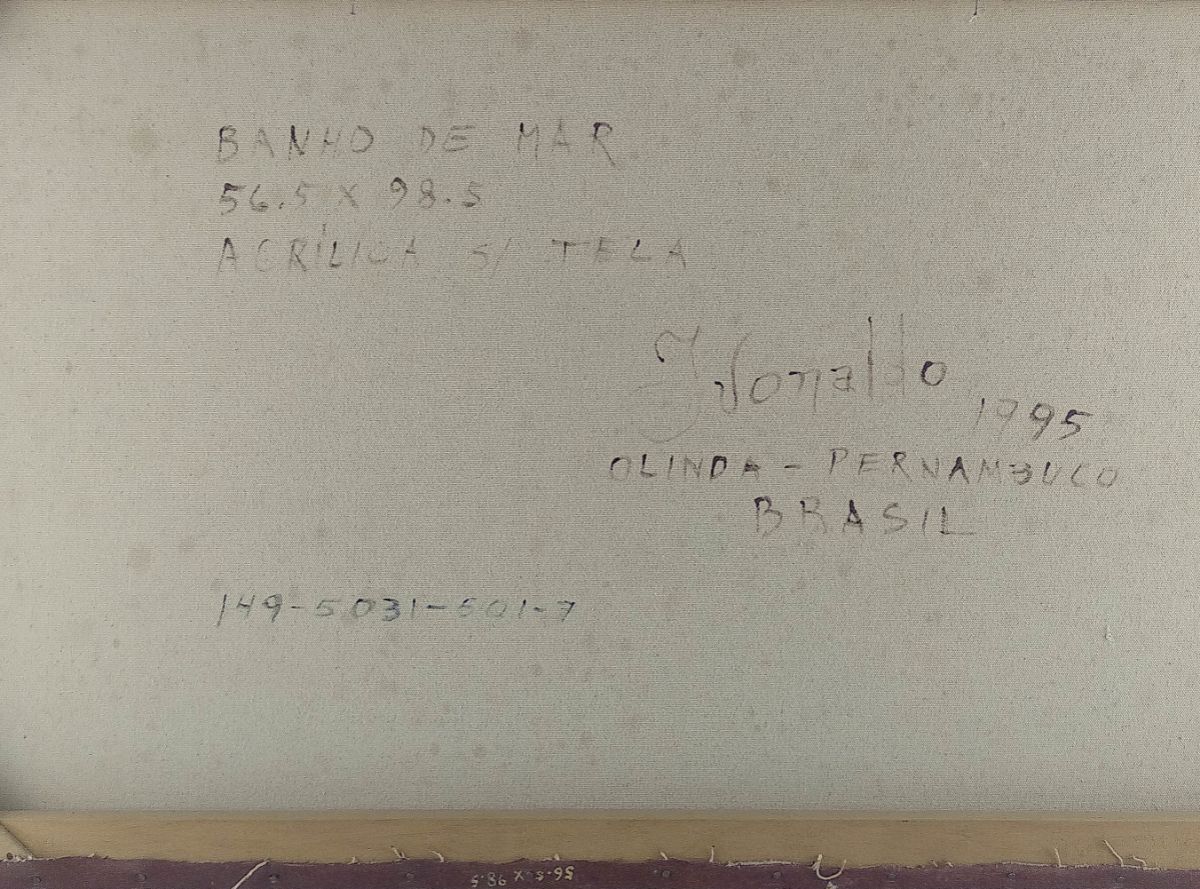 BANHO DE MAR
56.5 X 98.5
ACRÍLICA S/ TELA
Ivonaldo
1995
OLINDA - PERNAMBUCO
BRASIL
149-5031-501-7
56.5 X 98.5